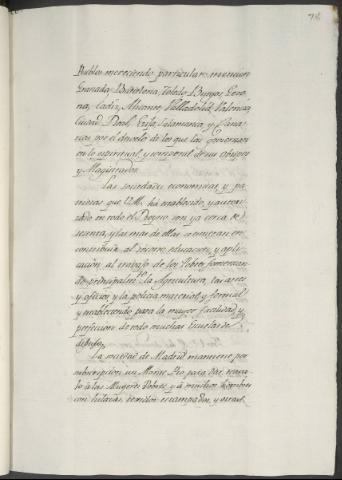 Pueblos mereciendo particular mencion
Granada, Barcelona, Toledo, Burgos, Gero
na, Cadiz, Alicante, Valladolid, Valencia,
Ciudad Real, Ecija, Salamanca, y Cana
rias, por el desvelo de los que las goviernan
en lo espiritual, y temporal de sus Obispos
y Magistrados.
Las sociedades economicas y pa
trioticas que V.M. ha establecido, y autori
zado en todo el Reyno son ya cerca de
sesenta, y las mas de ellas se esmeran en
contribuir al socorro, educacion, y aplic
acion al travajo de los Pobres, fomentan
do principalm.te la Agricultura, las artes
y oficios, y la policia material, y formal
y estableciendo para la mayor facilidad, y
perfeccion de todo muchas Escuelas de
dibujo.
La sociedad de Madrid mantiene por
subscripcion un Monte Pio para dar
lo a las Mugeres Pobres, y à muchos hombres
con hilazas, texidos estampados, y otras